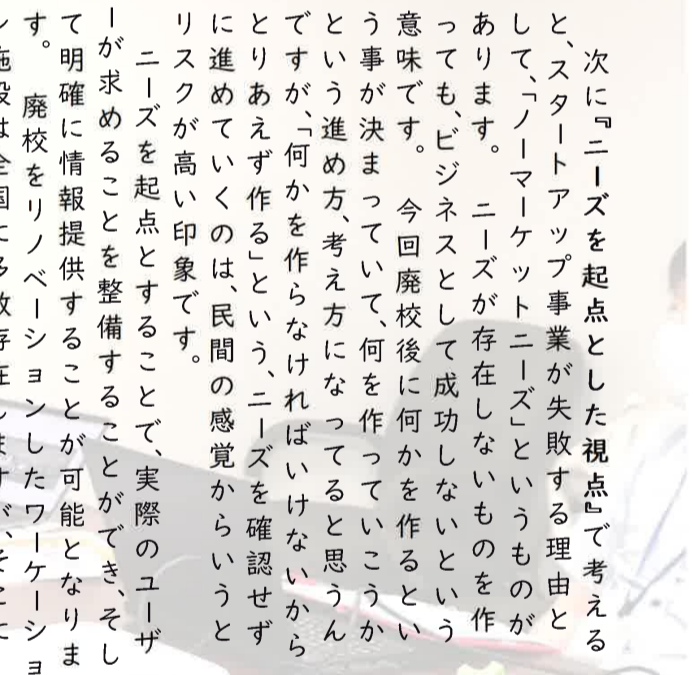 次に『ニーズを起点とした視点』で考える
と、スタートアップ事業が失敗する理由と
して、「ノーマーケットニーズ」というものが
あります。　ニーズが存在しないものを作
っても、ビジネスとして成功しないという
意味です。　今回廃校後に何かを作るとい
う事が決まっていて、何を作っていこうか
という進め方、考え方になってると思うん
ですが、「何かを作らなければいけないから
とりあえず作る」という、ニーズを確認せず
に進めていくのは、民間の感覚からいうと
リスクが高い印象です。
ニーズを起点とすることで、実際のユーザ
ーが求めることを整備することができ、そし
て明確に情報提供することが可能となりま
す。　廃校をリノベーションしたワーケーショ